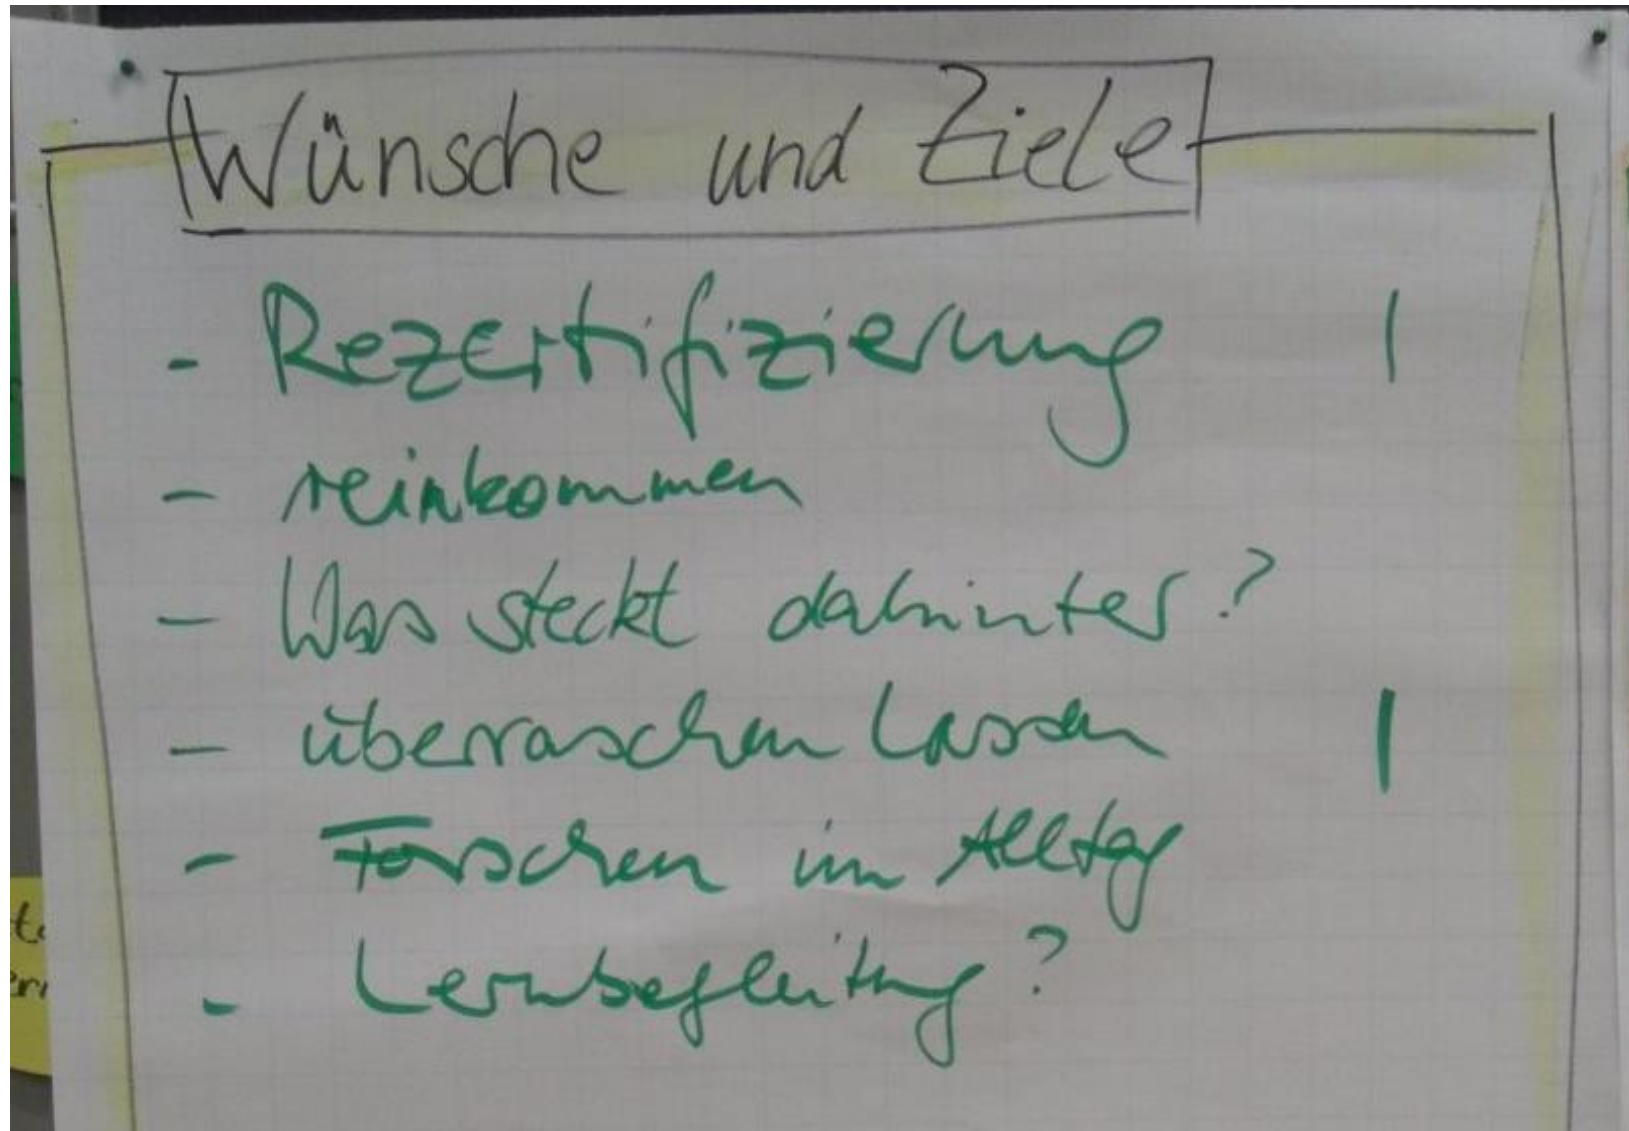 Wünsche und Ziele
- Rezertifizierung |
- reinkommen
- Was steckt dahinter?
- überraschen lassen |
- Forschen im Alltag
- Lernbegleitung?